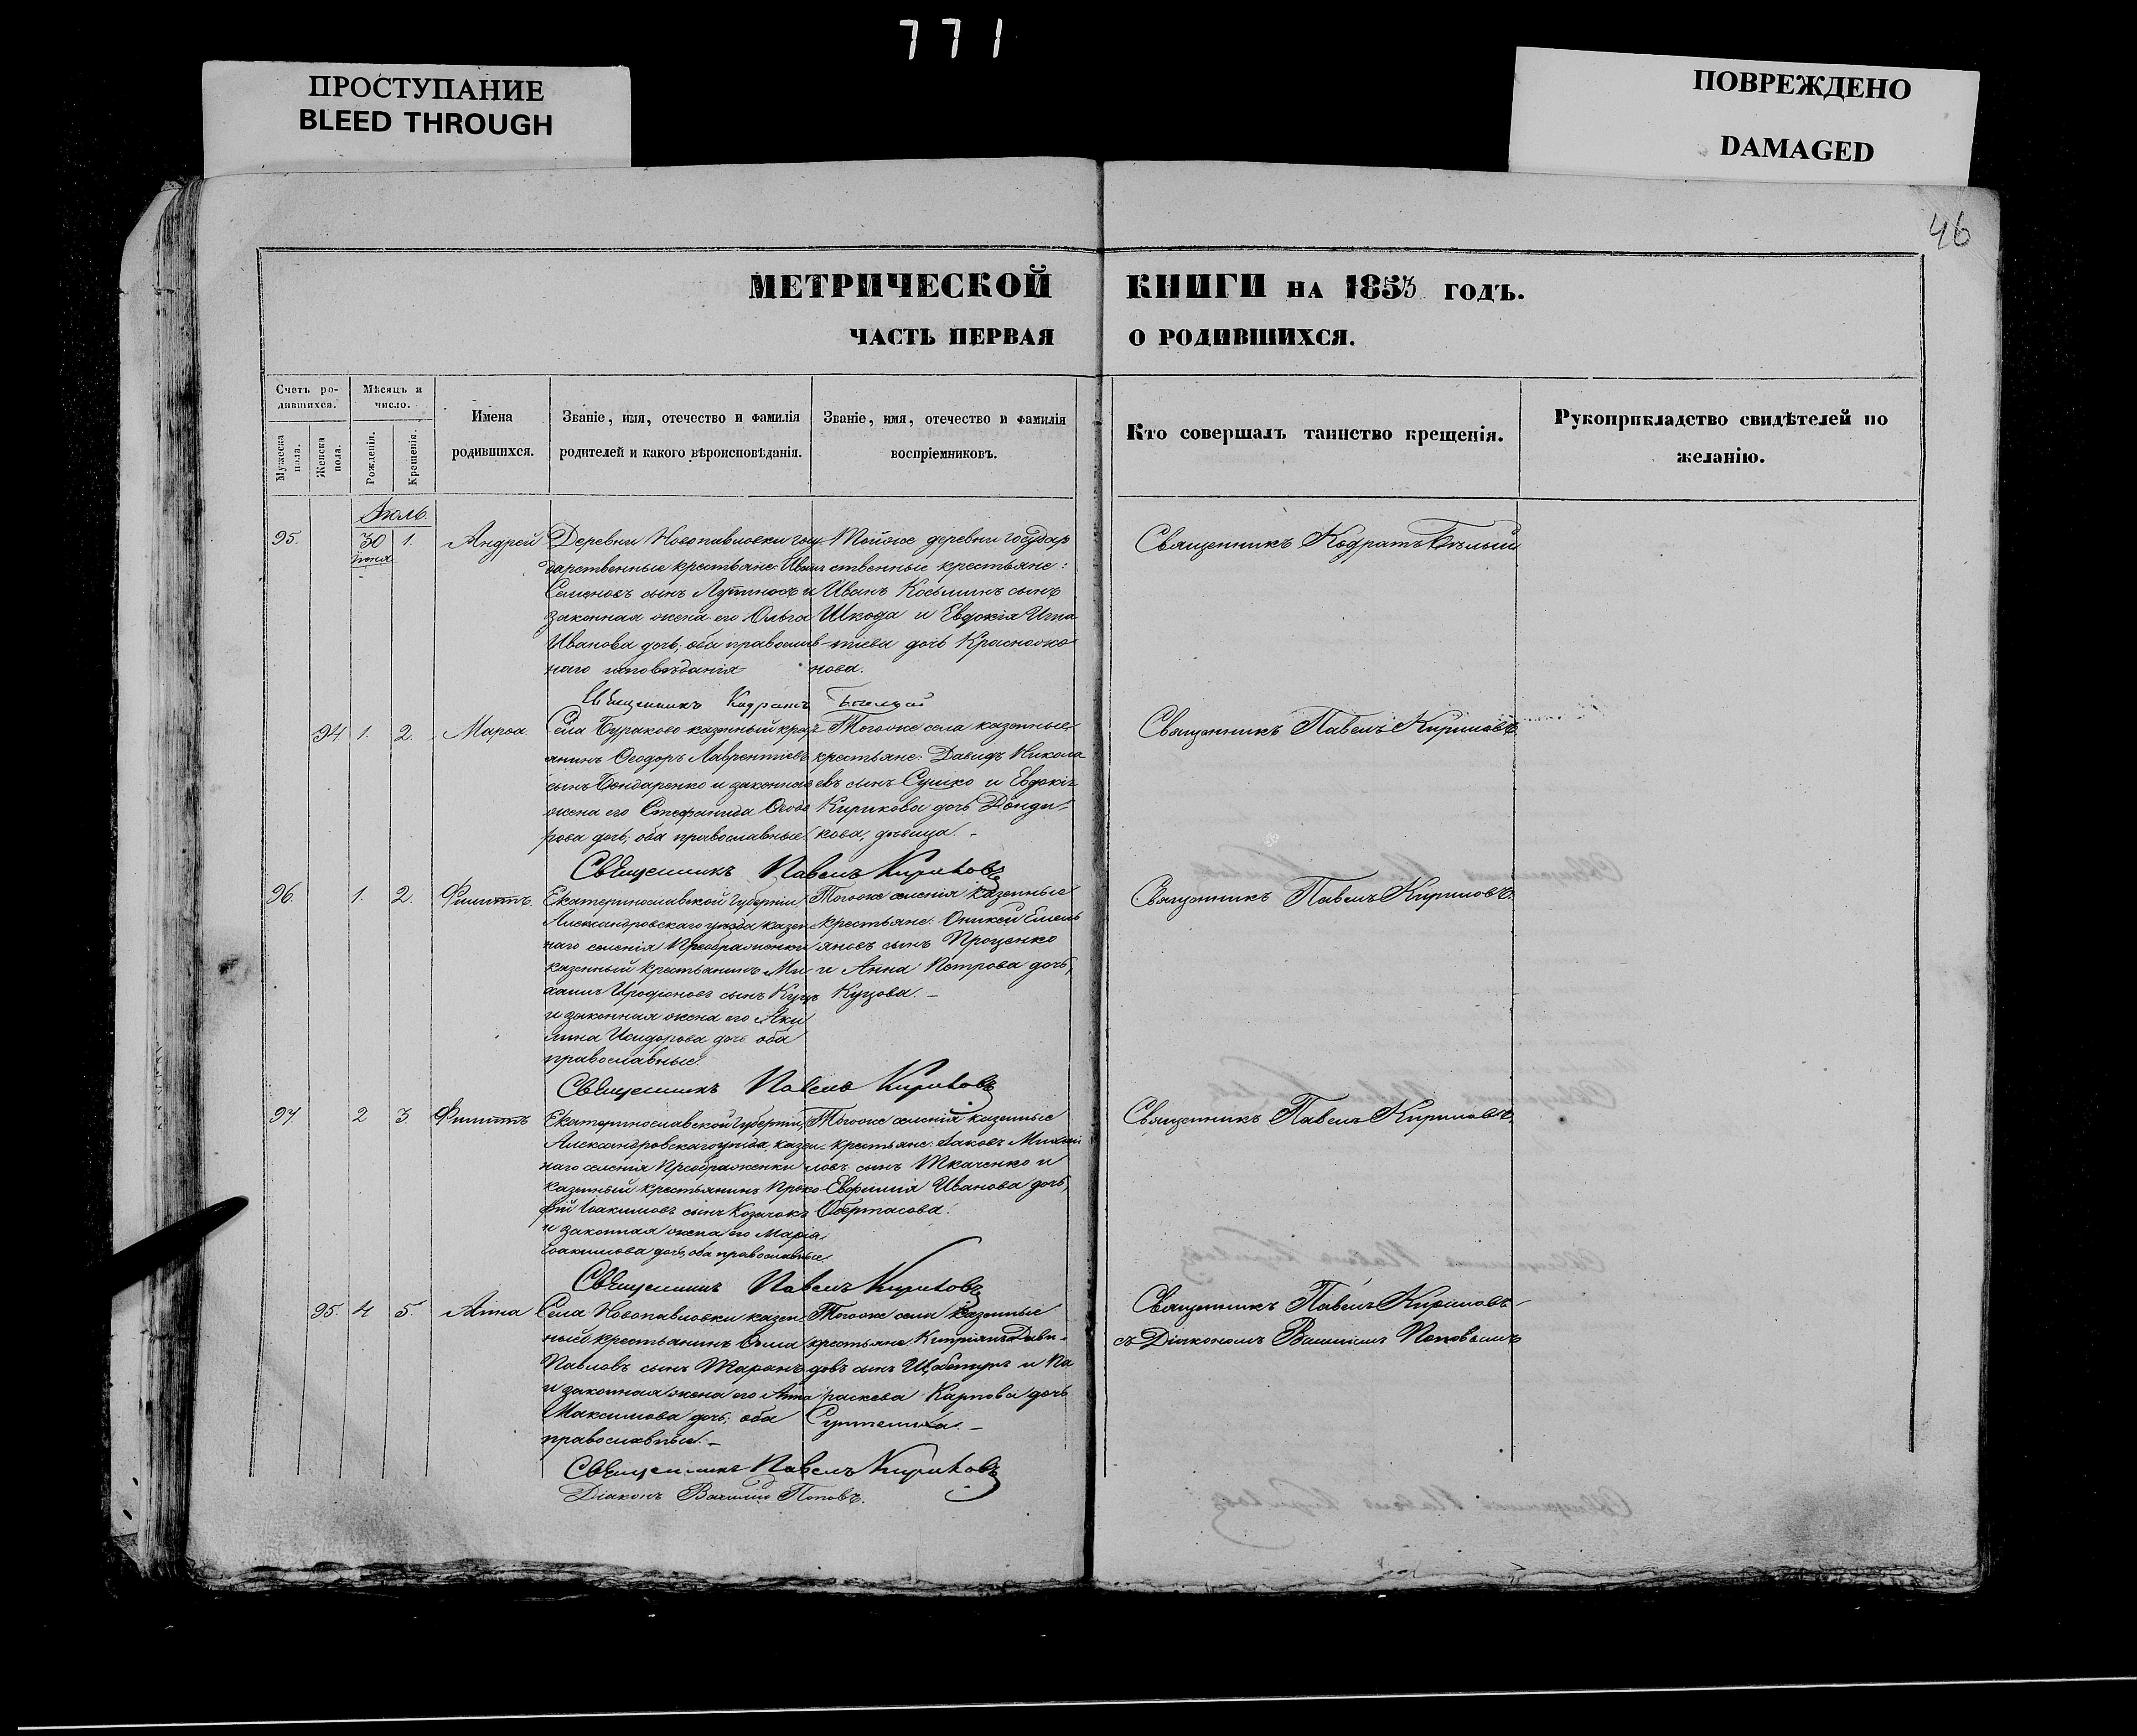 771
ПРОСТУПАНИЕ
BLEED THROUGH
ПОВРЕЖДЕНО
DAMAGED
46
МЕТРИЧЕСКОЙ КНИГИ НА 1853 ГОДЪ.
ЧАСТЬ ПЕРВАЯ О РОДИВШИХСЯ.
Счетъ ро-
дившихся.
Мужеска пола.
Женска пола.
Мѣсяцъ и
число.
Рожденія.
Крещенія.
Имена
родившихся.
Званіе, имя, отечество и фамилія
родителей и какого вѣроисповѣданія.
Званіе, имя, отечество и фамилія
воспріемниковъ.
Кто совершалъ таинство крещенія.
Рукоприкладство свидѣтелей по
желанію.
Іюль.
95.
30
іюня
1.
Андрей
Деревни Новопавловки госу-
дарственные крестьяне: Иванъ
Семеновъ сынъ и
законная жена его Ольга
Иванова дочь; оба православ
наго исповѣданія
Тойже деревни государ
ственные крестьяне:
Иванъ Косьминъ сынъ
Шкода и Евдокія Игна
тіева дочь Красноко
нова.
Священникъ Кодратъ Бѣлый
Священникъ Кодратъ Бѣлый
94
1.
2.
Марѳа.
Села Бураково казенный крес
янинъ Ѳеодоръ Лаврентіевъ
сынъ Бондаренко и законная
жена его Стефанида Ѳеодо
рова дочь, оба православные.
Тогоже села казенные
крестьяне: Давидъ Никола
евъ сынъ Сушко и Евдокія
Кирикова дочь
кова, дѣвица.
Священникъ Павелъ Кириловъ
Священникъ Павелъ Кириловъ.
96.
1.
2.
Филиппъ.
Екатеринославской губерніи
Александровскаго уѣзда казен
наго селенія Преображенки
казенный крестьянинъ Ми
хаилъ Иродіоновъ сынъ Куцъ
и законная жена его Аки
лина Исидорова дочь оба
православные.
Тогоже селенія казенные
крестьяне: Оникей Емель
яновъ сынъ Проценко
и Анна Петрова дочь,
Куцова.
Священникъ Павелъ Кириловъ
Священникъ Павелъ Кириловъ.
97.
2
3.
Филиппъ
Екатеринославской губерніи,
Александровскаго уѣзда, казен-
наго селенія Преображенки
казенный крестьянинъ Проко
фій Іоакимовъ сынъ Козачокъ
и законная жена его Марія
Іоакимова дочь, оба православные.
Тогоже селенія казенные
крестьяне: Іаковъ Михаи
ловъ сынъ Ткаченко и
Евфимія Иванова дочь,
Обертасова.
Священникъ Павелъ Кириловъ
Священникъ Павелъ Кириловъ.
95.
4
5.
Анна
Села Новопавловки казен
ный крестьянинъ
Павловъ сынъ Таранъ
и законная жена его Анна
Максимова дочь; оба
православные.
Тогоже села казенные
крестьяне: Кипріянъ Дави-
довъ сынъ и Па
раскева Карпова дочь
Священникъ Павелъ Кириловъ
съ Діакономъ Василіемъ Поповымъ
Священникъ Павелъ Кириловъ
Діаконъ Василій Поповъ.